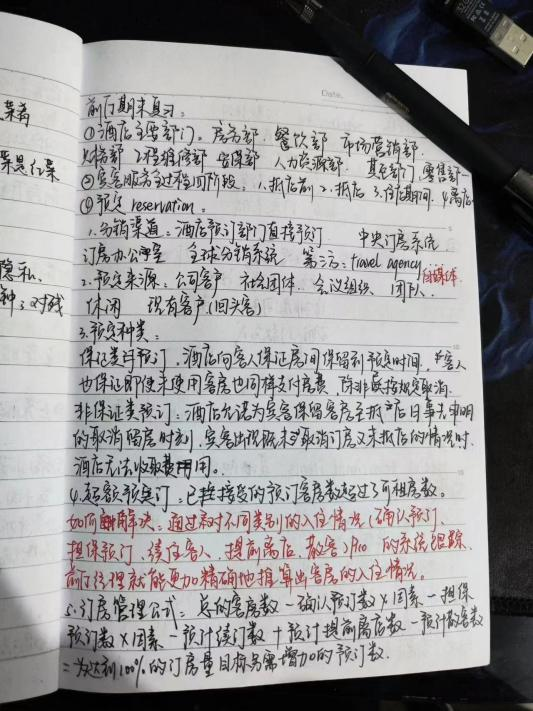 Date.
前厅期末复习：
①酒店主要部门。房务部、餐饮部 市场营销部、
财务部 工程维修部 安保部 人力资源部、其它部门，零售部
②宾客服务全过程四阶段：1.抵店前 2.抵店 3.住店期间 4.离店
④预定 reservation：
1.分销渠道：酒店预订部门直接预订 中央订房系统
订房办公室 全球分销系统 第三方：travel agency 自媒体
2.预定来源：公司客户 社会团体 会议组织 团队
休闲 现有客户(回头客)
3.预定种类：
保证类预订，酒店向客人保证房间保留到预定时间，客人
也保证即使未使用客房也同样支付房费 除非按规定取消
非保证类预订：酒店允诺为宾客保留客房至抵店日事先申明
的取消留房时刻，宾客出现既未取消订房又未抵店的情况时，
酒店无法收取费用。
4.超额预定：已经接受的预订客房数超过了可租房数。
如何解决：通过对不同类别的入住情况(确认预订、
担保预订、续住客人、提前离店、散客) 的系统跟踪，
前厅经理就能更加精确地推算出客房的入住情况。
5.订房管理公式：总的客房数－确认预订数×因素－担保
预订数×因素－预计续订数＋预计提前离店数－预计散客数
＝为达到100%的订房量目标另需增加的预订数.
菜肴
菜是红菜
隐私、
种：对残